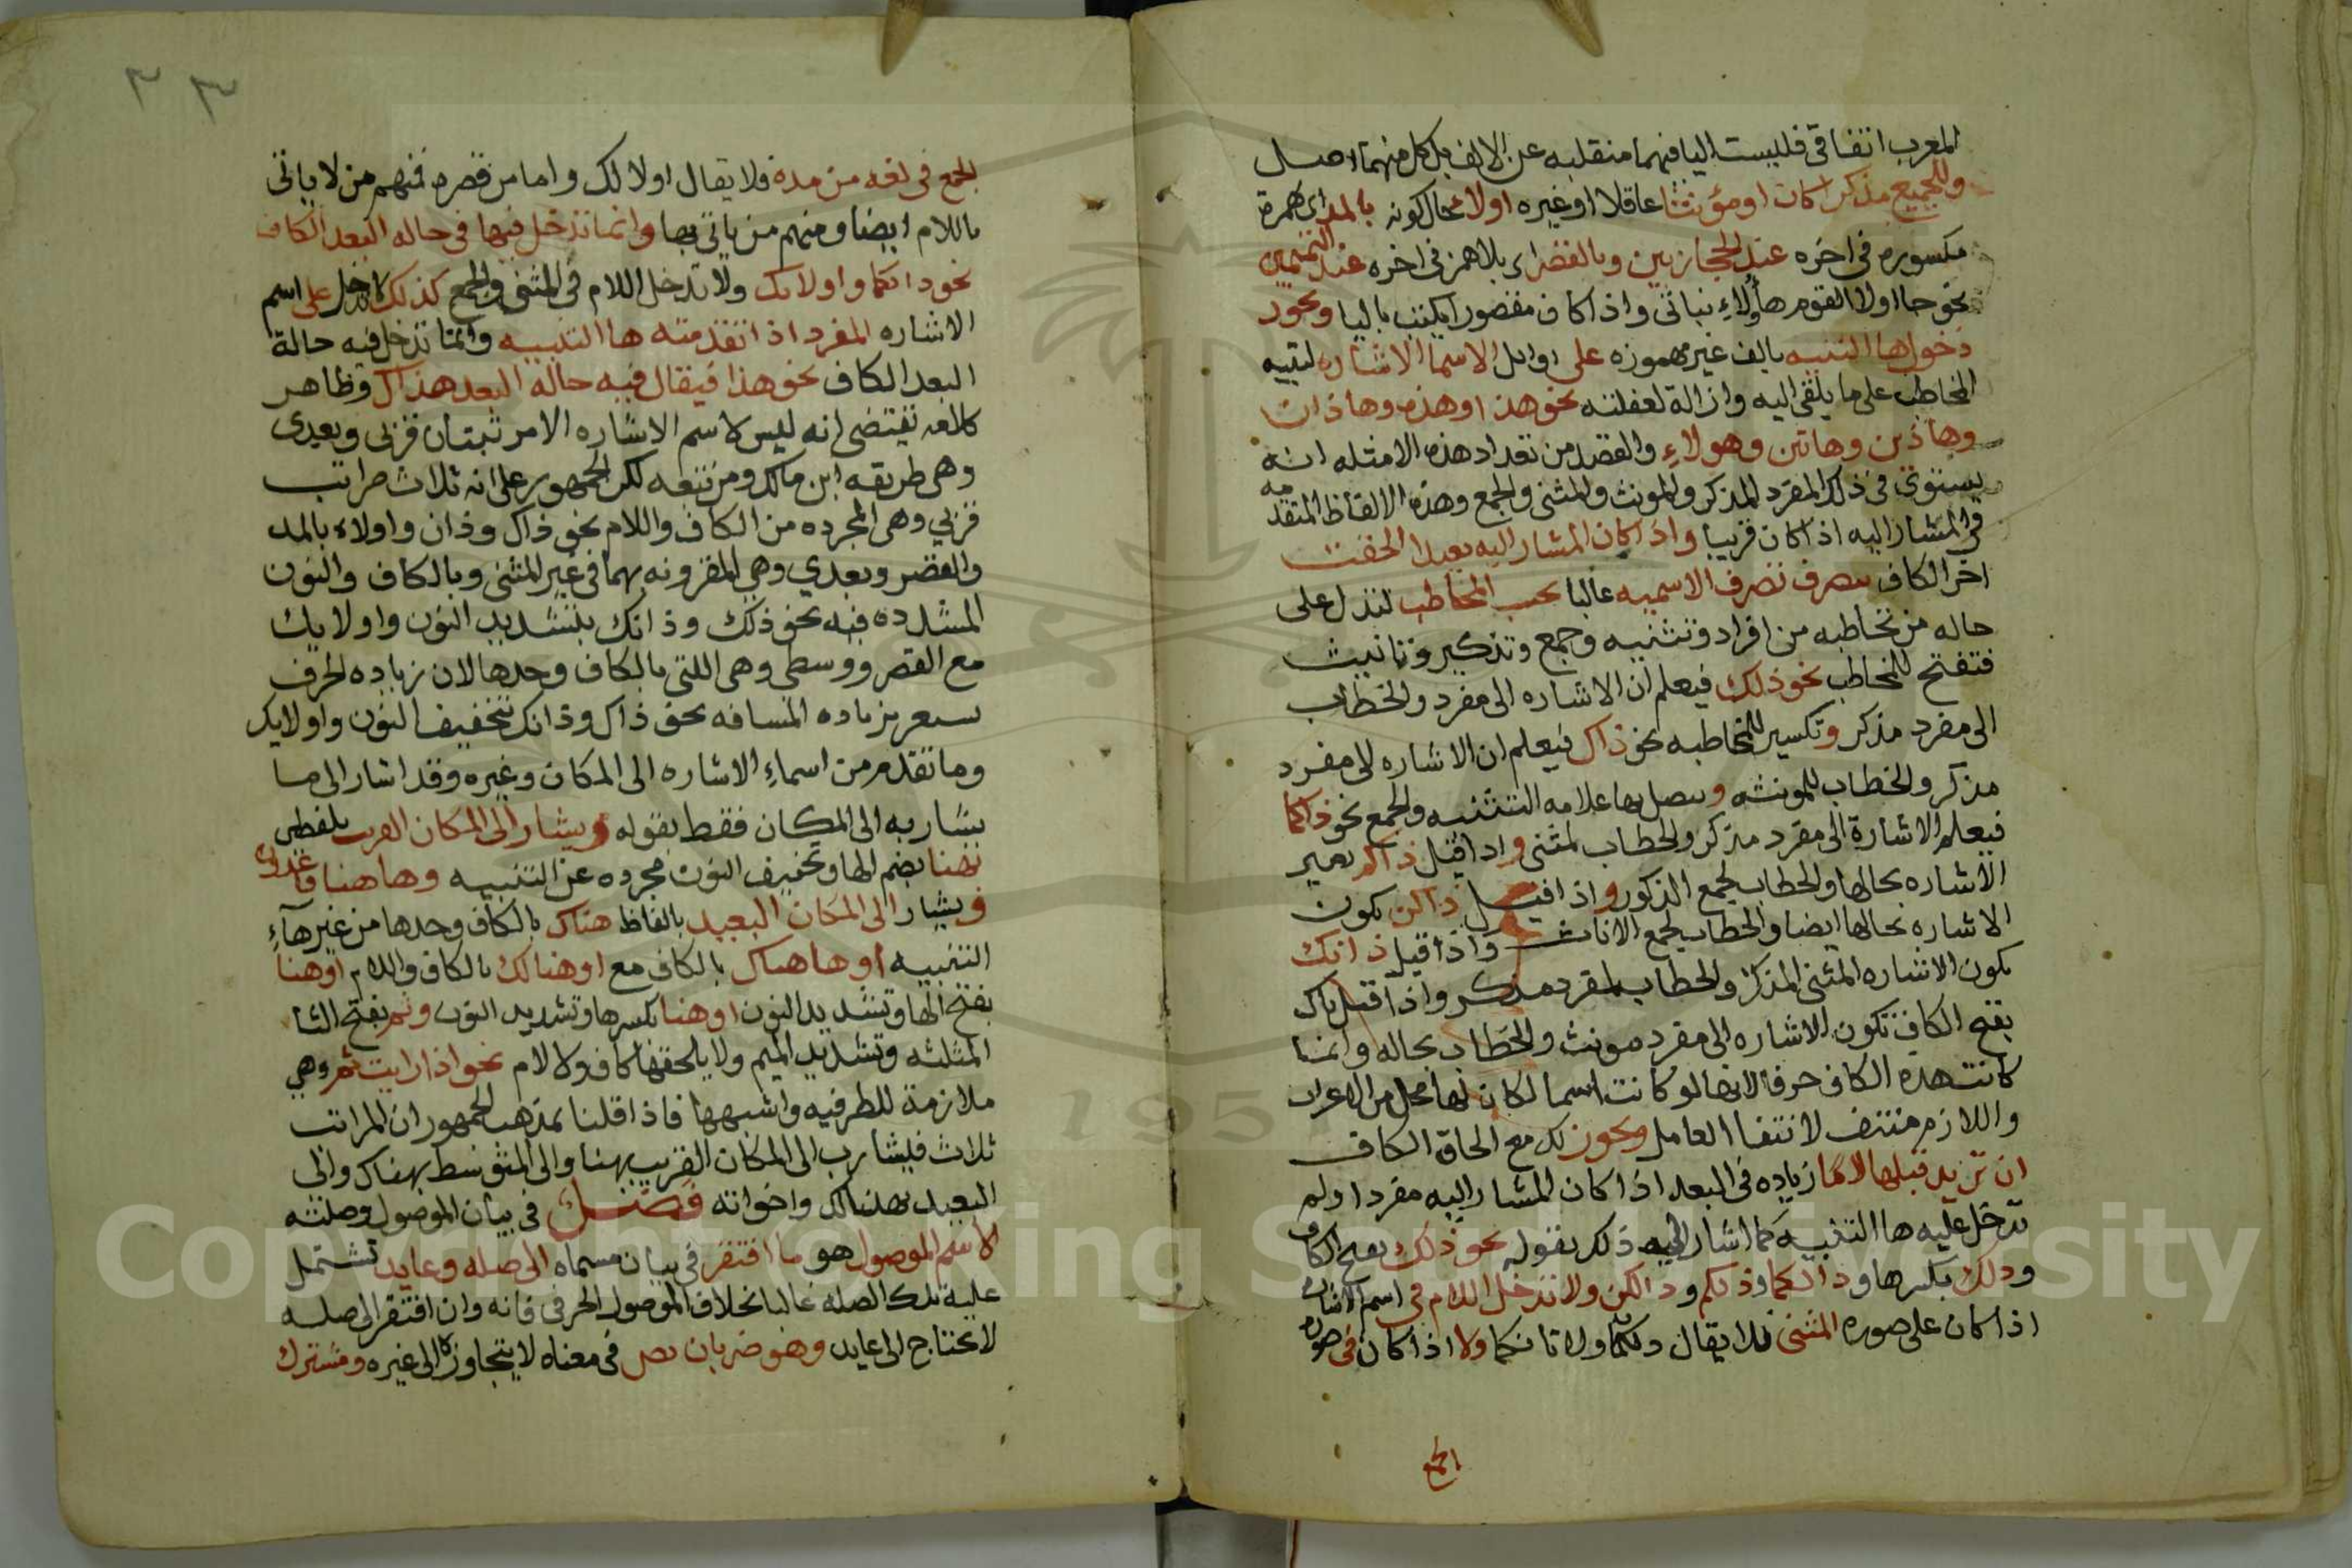 المعرب اتفاقى فليست اليا فيهما منقلبه عن الالف بل كل منهما اصل
وللجميع مذكرا كان او مؤنثا عاقلا او غيره اولاء حال كونه بالمد اى بهمزة
مكسوره فى اخره عند الحجازيين وبالقصر اى بلا همز فى اخره عند التميميين
نحو جا اولا القوم هأولاء بناتى واذا كان مقصورا يكتب باليا ويجوز
دخول ها التنبيه بالف غير مهموزه على اوايل الاسما الاشاره لتنبيه
المخاطب على ما يلقى اليه وازالة لغفلته نحو هذا وهذه وهاذان
وهاذين وهاتين وهولاء والقصد من تعداد هذه الامثله انه
يستوى فى ذلك المفرد المذكر والمونث والمثنى والجمع وهذه الالفاظ المتقدمه
فى المشار اليه اذا كان قريبا واذا كان المشار اليه بعيدا الحقت
اخر الكاف تتصرف تصرف الاسميه غالبا بحسب المخاطب لتدل على
حاله من تخاطبه من افراد وتثنيه وجمع وتذكير وتانيث
فتفتح للمخاطب نحو ذلك فيعلم ان الاشاره الى مفرد والخطاب
الى مفرد مذكر وتكسير للمخاطبه نحو ذاك فيعلم ان الاشاره الى مفرد
مذكر والخطاب للمونثه ويتصل بها علامه التثنيه والجمع نحو ذاكما
فيعلم الاشارة الى مفرد مذكر والخطاب لمثنى واذا قيل ذاكم بميم
الاشاره بحالها والخطاب لجمع الذكور واذا قيل ذاكن يكون
الاشاره بحالها ايضا والخطاب لجمع الاناث واذا قيل ذانك
يكون الاشاره المثنى المذكر والخطاب لمفرد مذكر واذا قيل تاك
بفتح الكاف تكون الاشاره الى مفرد مونث والخطاب بحاله وانما
كانت هذه الكاف حرفا لانها لو كانت اسما لكان لها محل من الاعراب
واللازم منتف لانتفا العامل ويجوز لك مع الحاق الكاف
ان تزيد قبلها لاما زياده فى البعد اذا كان المشار اليه مفردا ولم
تدخل عليه ها التنبيه كما اشار اليه ذلك بقوله نحو ذلك بفتح الكاف
وذلك بكسرها وذالكما وذلكم وذالكن ولا تدخل اللام فى اسم الاشاره
اذا كان على صوره المثنى فلا يقال ولا تانكما ولا اذا كان فى صورة
الجمع
الجمع فى لغه من مده فلا يقال اولا لك واما من قصره فمنهم من لا ياتى
باللام ايضا ومنهم من ياتى بها وانما تدخل فيها فى حاله البعد الكاف
نحو ذانكما واولائك ولا تدخل اللام فى المثنى والجمع كذلك لا تدخل على اسم
الاشاره المفرد اذا تقدمته ها التنبيه وانما تدخل فيه حالة
البعد الكاف نحو هذا فيقال فيه حاله البعد هذاك وظاهر
كلامه تقتضى انه ليس لاسم الاشاره الا مرتبتان قربى وبعدى
وهى طريقه ابن مالك ومن تبعه لكن الجمهور على انه ثلاث مراتب
قربي وهى المجرده من الكاف واللام نحو ذاك وذان واولاء بالمد
والقصر وبعدي وهي المقرونه بهما فى غير المثنى وبالكاف والنون
المشدده فيه نحو ذلك وذانك بتشديد النون واولايك
مع القصر ووسطى وهى اللتى بالكاف وحدها لان زياده الحرف
تشعر بزياده المسافه نحو ذاك وذانك بتخفيف النون واولايك
وما تقدم من اسماء الاشاره الى المكان وغيره وقد اشار الى ما
يشار به الى المكان فقط بقوله ويشار الى المكان القريب بلفظى
بهنا بضم الها وتخفيف النون مجرده عن التنبيه وها هنا
ويشار الى المكان البعيد بالفاظ هناك بالكاف وحدها من غير هآء
التنبيه او ها هناك بالكاف مع او هنالك بالكاف واللام او هنا
بفتح الها وتشديد النون او هنا بكسرها وتشديد النون وثم بفتح الثا
المثلثه وتشديد الميم ولا يلحقها كاف ولا لام نحو اذا رايت ثم وهى
ملازمة للظرفيه واشبهها فاذا قلنا بمذهب الجمهور ان المراتب
ثلاث فيشار الى المكان القريب بهنا والى المتوسط بهناك والى
البعيد بهنالك واخواته فصل فى بيان الموصول وصلته
الاسم الموصول هو ما افتقر فى بيان مسماه الى صله وعايد تشتمل
عليه تلك الصله غالبا بخلاف الموصول الحرفى فانه وان افتقر الى صله
لا يحتاج الى عايد وهو ضربان نص فى معناه لا يتجاوزه الى غيره ومشترك
Copyright © King Saud University
1957